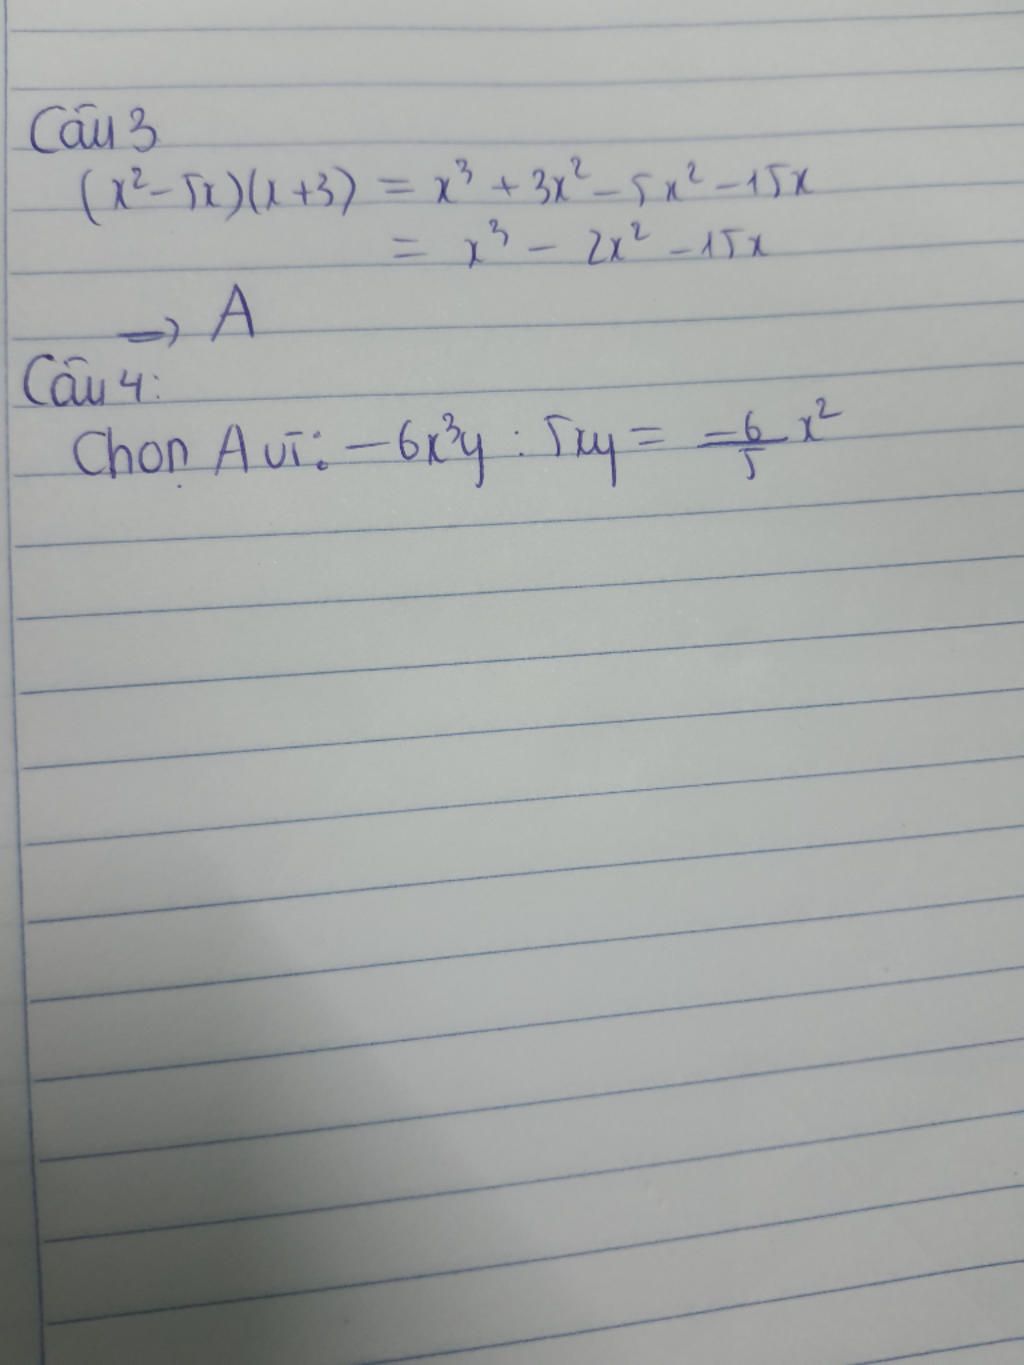 Câu 3
(x² - 5x)(x + 3) = x³ + 3x² - 5x² - 15x
= x³ - 2x² - 15x
→ A
Câu 4:
Chọn A vì: -6x³y : 5xy = -6/5 x²